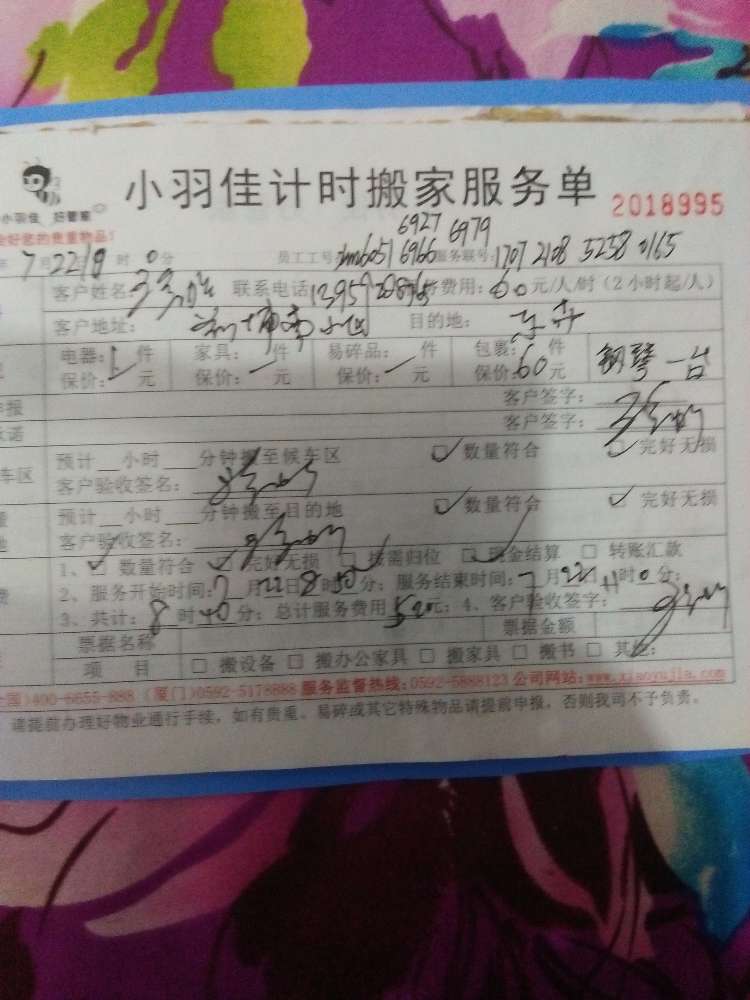 小羽佳计时搬家服务单
2018995
小羽佳 好管家
好您的贵重物品!
6927 6979
年7月22日8时0分 员工工号: xm6051 6966 服务联号: 1707 2108 5258 0165
客户姓名: 联系电话: 费用: 60元/人/时(2小时起/人)
客户地址: 目的地:
电器: 件 家具: 件 易碎品: 件 包裹: 件 钢琴一台
保价: 元 保价: 元 保价: 元 保价: 60元
客户签字:
客户签字:
预计 小时 分钟搬至候车区 数量符合 完好无损
车区
客户验收签名:
预计 小时 分钟搬至目的地 数量符合 完好无损
客户验收签名:
1、 数量符合 完好无损 按需归位 现金结算 转账汇款
2、服务开始时间: 7月22日8时50分; 服务结束时间: 7月22日11时0分;
3、共计: 8时40分; 总计服务费用520元; 4、客户验收签字:
票据名称 票据金额
项 目 搬设备 搬办公家具 搬家具 搬书 其他:
国)400-6655-888 (厦门)0592-5178888 服务监督热线:0592-5888123 公司网站:www.xiaoyujia.com
请提前办理好物业通行手续,如有贵重、易碎或其它特殊物品请提前申报,否则我司不予负责。